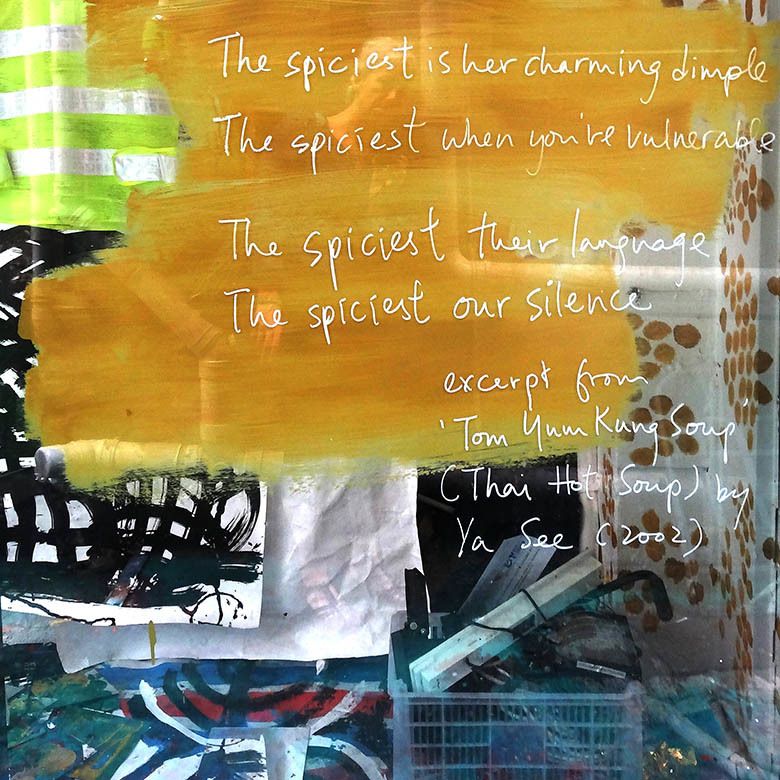 The spiciest is her charming dimple
The spiciest when you're vulnerable
The spiciest their language
The spiciest our silence
excerpt from
'Tom Yum Kung Soup'
(Thai Hot Soup) by
Ya See (2002)